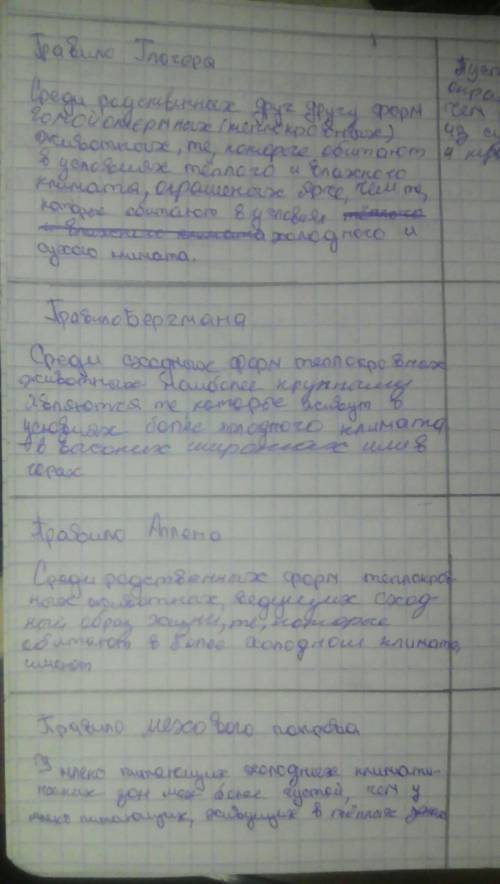 Правило Глогера
Среди родственных друг другу форм
гомойотермных (теплокровных)
животных, те, которые обитают
в условиях тёплого и влажного
климата, окрашены ярче, чем те,
которые обитают в условиях тёплого
и влажного климата холодного и
сухого климата.
Пуст
окра
чем
из с
Правило Бергмана
Среди сходных форм теплокровных
животных наиболее крупными
являются те которые живут в
условиях более холодного климата
в высоких широтах или в
горах
Правило Аллена
Среди родственных форм теплокров
ных животных, ведущих сход
ный образ жизни, те, которые
обитают в более холодном климате,
имеют
Правило мехового покрова
У млекопитающих холодных климати
ческих зон мех более густой, чем у
млекопитающих, живущих в тёплых зонах